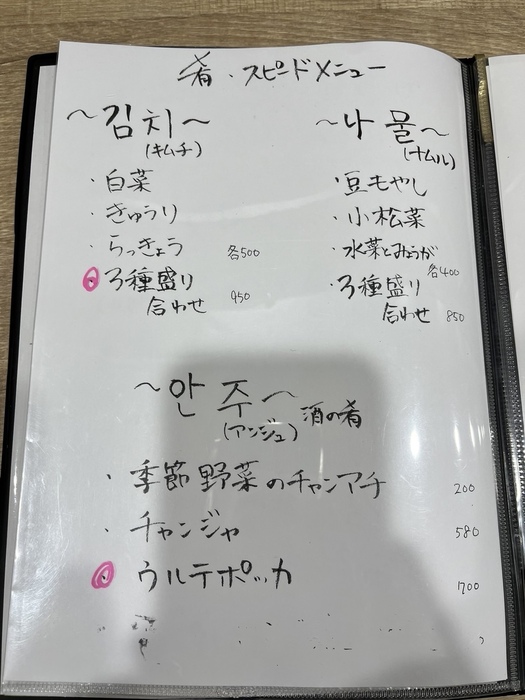 肴・スピードメニュー
～김치～
(キムチ)
・白菜
・きゅうり
・らっきょう 各500
・3種盛り
合わせ 950
～나물～
(ナムル)
・豆もやし
・小松菜
・水菜とみょうが
各400
・3種盛り
合わせ 850
～안주～
(アンジュ) 酒の肴
・季節野菜のチャンアチ 200
・チャンジャ 580
・ウルテポッカ 700